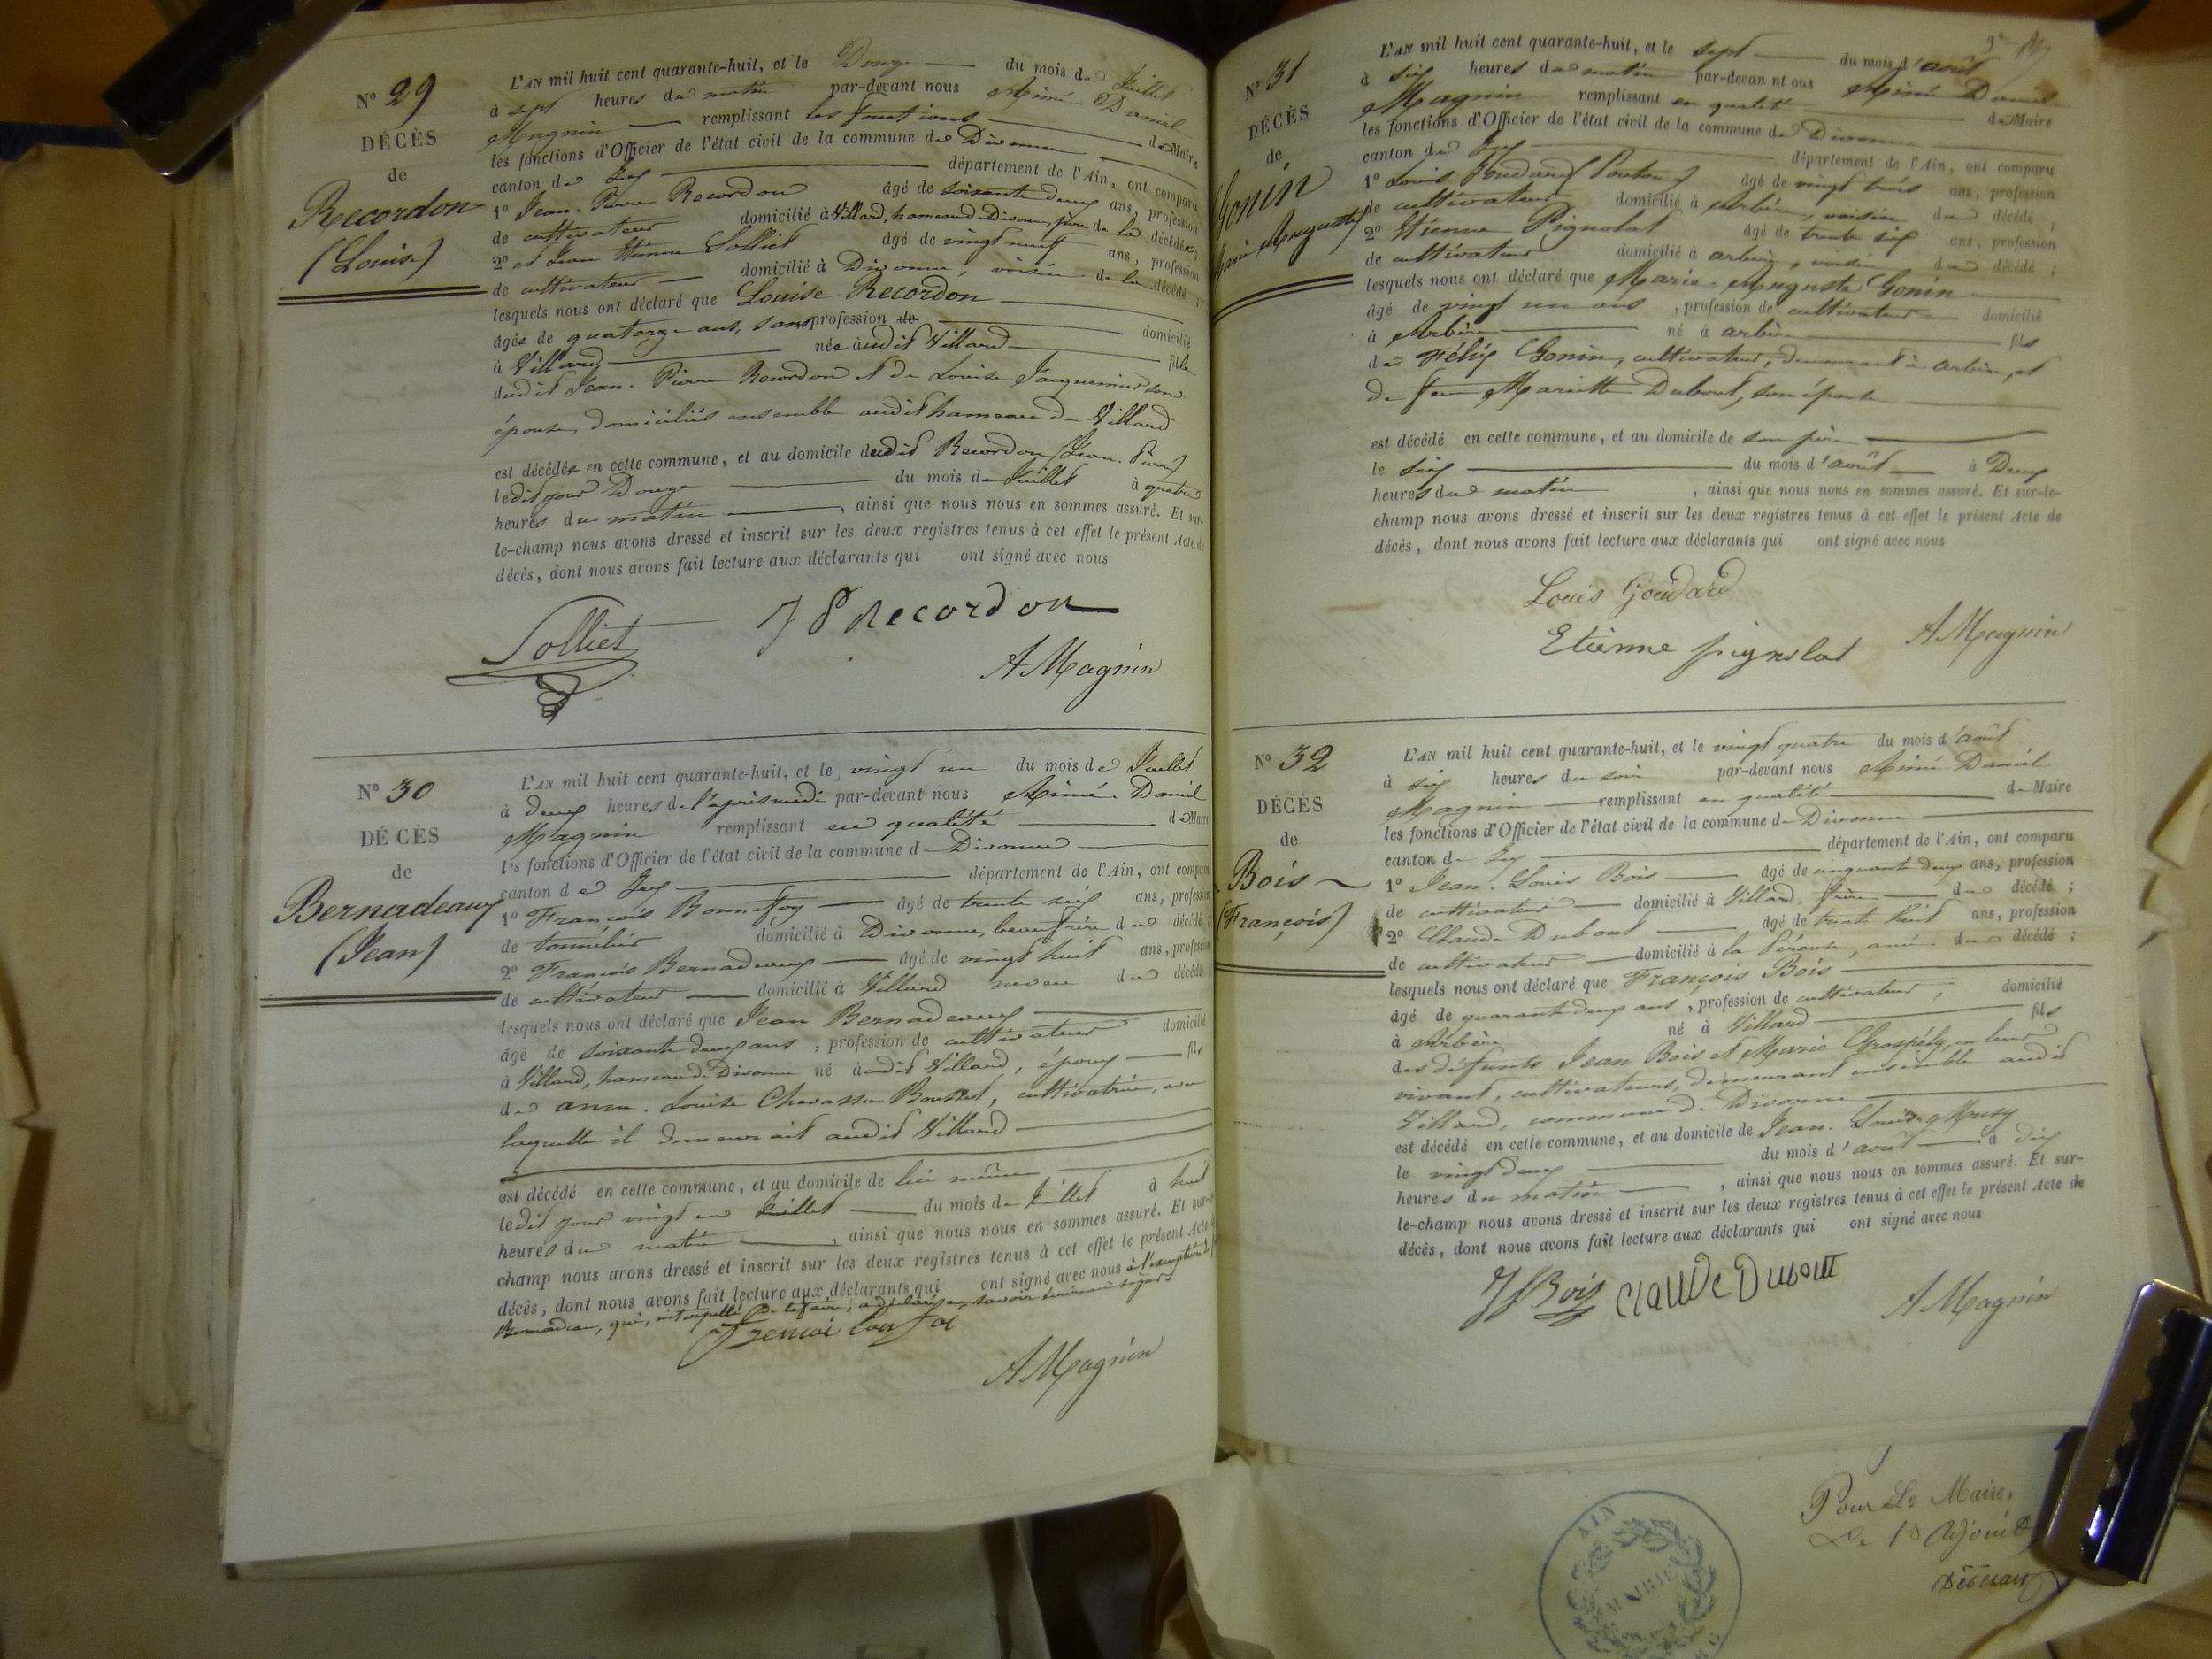 N° 29
DÉCÈS
de
Recordon
(Louise)
L'AN mil huit cent quarante-huit, et le Douze du mois de Juillet
à sept heures du matin par-devant nous Aimé Daniel
Magnin remplissant les fonctions de Maire
les fonctions d'Officier de l'état civil de la commune de Divonne
canton de Gex département de l'Ain, ont comparu
1° Jean-Pierre Recordon âgé de soixante deux ans, profession
de cultivateur domicilié à Villard, hameau de Divonne, père de la décédée,
2° et Jean Etienne Solliet âgé de vingt neuf ans, profession
de cultivateur domicilié à Divonne, voisin de la décédé ;
lesquels nous ont déclaré que Louise Recordon
âgée de quatorze ans, sans profession de domicilié
à Villard née audit Villard fille
dudit Jean-Pierre Recordon et de Louise Jacquemier son
épouse, domiciliés ensemble audit hameau de Villard
est décédée en cette commune, et au domicile dudit Recordon (Jean-Pierre)
ledit jour Douze du mois de Juillet à quatre
heures du matin, ainsi que nous nous en sommes assuré. Et sur-
le-champ nous avons dressé et inscrit sur les deux registres tenus à cet effet le présent Acte de
décès, dont nous avons fait lecture aux déclarants qui ont signé avec nous
Solliet
J P Recordon
A Magnin
N° 30
DÉCÈS
de
Bernadeaux
(Jean)
L'AN mil huit cent quarante-huit, et le vingt un du mois de Juillet
à deux heures de l'après midi par-devant nous Aimé-Daniel
Magnin remplissant en qualité de Maire
les fonctions d'Officier de l'état civil de la commune de Divonne
canton de Gex département de l'Ain, ont comparu
1° François Bonnefoy âgé de trente six ans, profession
de tonnelier domicilié à Divonne, beau frère du décédé
2° François Bernadeaux âgé de vingt huit ans, profession
de cultivateur domicilié à Villard neveu du décédé
lesquels nous ont déclaré que Jean Bernadeaux
âgé de soixante deux ans, profession de cultivateur domicilié
à Villard, hameau de Divonne né audit Villard, époux fils
de anne-Louise Chevassu Bousset, cultivatrice, avec
laquelle il demeurait audit Villard
est décédé en cette commune, et au domicile de lui même
ledit jour vingt un Juillet du mois de Juillet à huit
heures du matin, ainsi que nous nous en sommes assuré. Et sur-le-
champ nous avons dressé et inscrit sur les deux registres tenus à cet effet le présent Acte
décès, dont nous avons fait lecture aux déclarants qui ont signé avec nous à l'exception de
Bernadeau, qui, interpellé de le faire, a déclaré ne savoir écrire ni signer
A Magnin
N° 31
DÉCÈS
de
Gonin
Marie Auguste
L'AN mil huit cent quarante-huit, et le sept du mois d'août
à six heures du matin par-devan nt ous Aimé Daniel
Magnin remplissant en qualité de Maire
les fonctions d'Officier de l'état civil de la commune de Divonne
canton de Gex département de l'Ain, ont comparu
1° Louis Goudard âgé de vingt trois ans, profession
de cultivateur domicilié à Arbère, voisin du décédé ;
2° Etienne Pignolat âgé de trente six ans, profession
de cultivateur domicilié à arbère, voisin du décédé ;
lesquels nous ont déclaré que Marie-Auguste Gonin
âgé de vingt un ans, profession de cultivateur domicilié
à Arbère né à arbère fils
de Félix Gonin, cultivateur, demeurant à arbère, et
de Mariette Dubout, son épouse
est décédé en cette commune, et au domicile de son père
le six du mois d'août à Deux
heures du matin, ainsi que nous nous en sommes assuré. Et sur-le-
champ nous avons dressé et inscrit sur les deux registres tenus à cet effet le présent Acte de
décès, dont nous avons fait lecture aux déclarants qui ont signé avec nous
Louis Goudard
Etienne pignolat
A Magnin
N° 32
DÉCÈS
de
Bois
(François)
L'AN mil huit cent quarante-huit, et le vingt quatre du mois d'août
à six heures du soir par-devant nous Aimé Daniel
Magnin remplissant en qualité de Maire
les fonctions d'Officier de l'état civil de la commune de Divonne
canton de Gex département de l'Ain, ont comparu
1° Jean-Louis Bois âgé de cinquante deux ans, profession
de cultivateur domicilié à Villard, frère du décédé ;
2° Claude Dubout âgé de trente huit ans, profession
de cultivateur domicilié à la Pérouse, ami du décédé ;
lesquels nous ont déclaré que François Bois
âgé de quarante deux ans, profession de cultivateur, domicilié
à Arbère né à Villard fils
des défunts Jean Bois et Marie Grospély, en leur
vivant, cultivateurs, demeurant ensemble audit
Villard, commune de Divonne
est décédé en cette commune, et au domicile de Jean-Louis Mury
le vingt deux du mois d'août à dix
heures du matin, ainsi que nous nous en sommes assuré. Et sur-
le-champ nous avons dressé et inscrit sur les deux registres tenus à cet effet le présent Acte de
décès, dont nous avons fait lecture aux déclarants qui ont signé avec nous
JL Bois
Claude Dubout
A Magnin
AIN
MAIRIE
Pour Le Maire,
Le 1er Adjoint